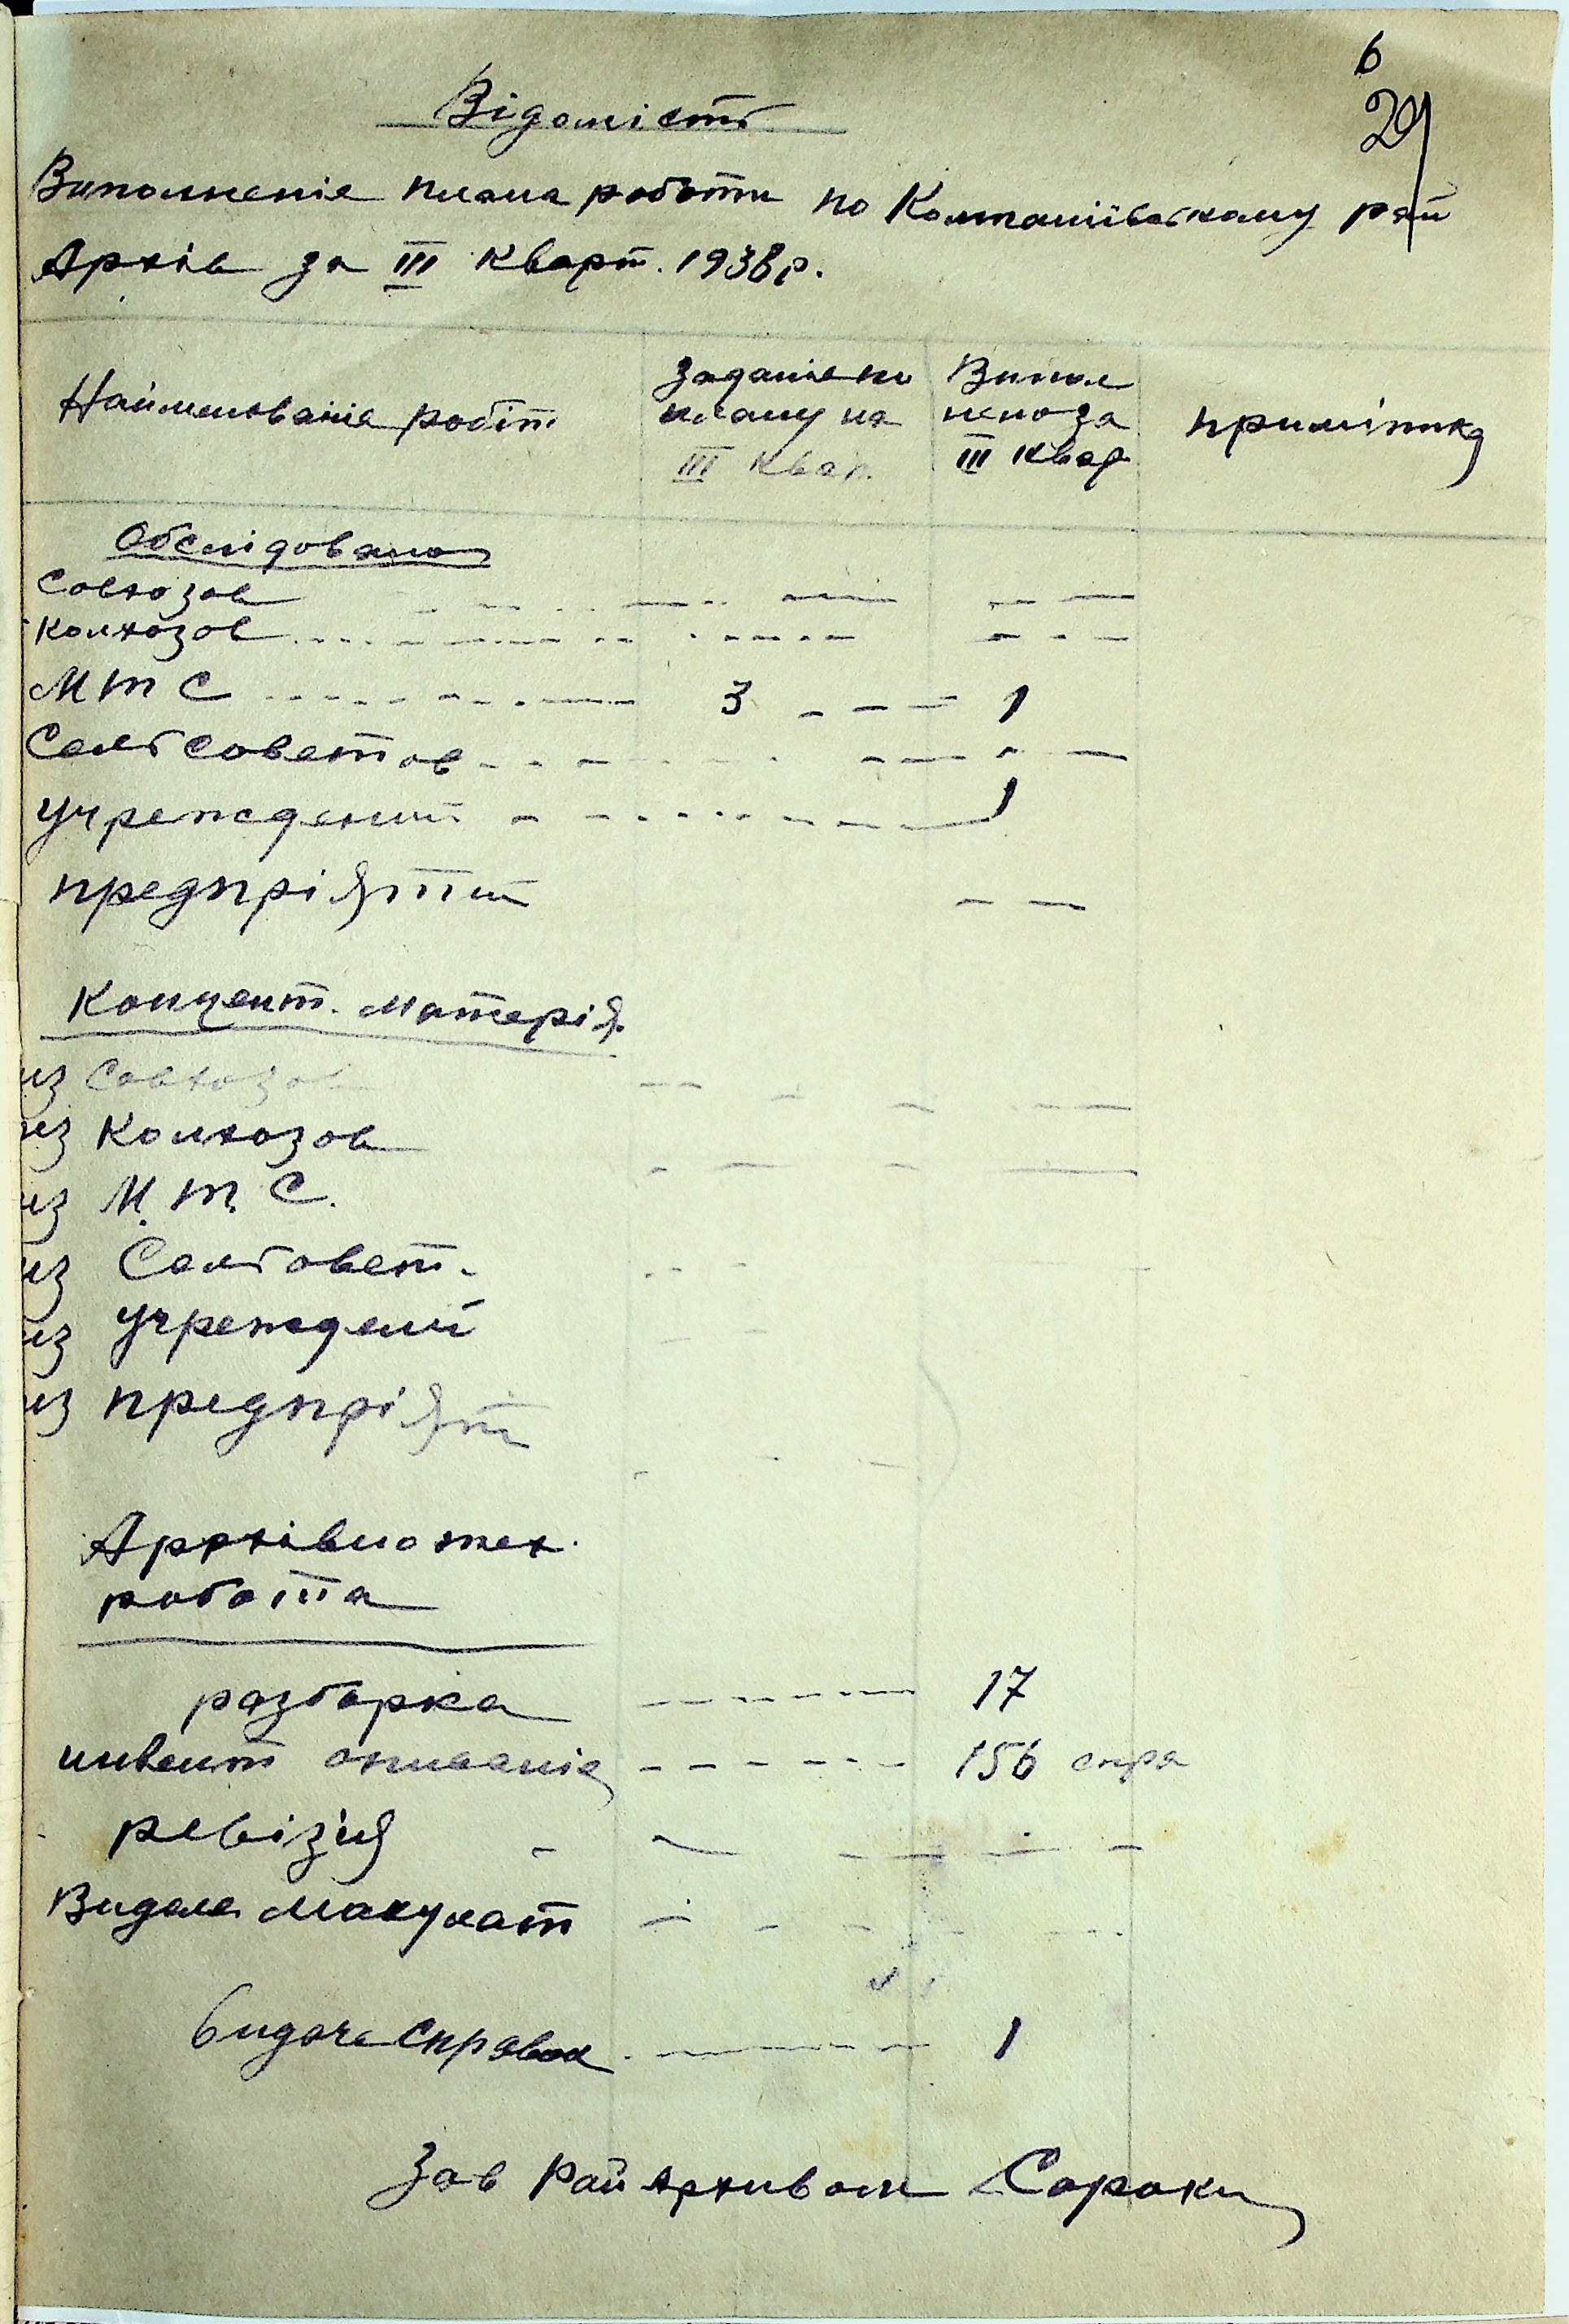 6
29
Відомість
Виполненіе плана работи по Компаніївському рай
Архів за III Кварт. 1938 р.
Найменованіе робіт
Заданіе по
плану на
III квар.
Випол
нено за
III квар
примітка
Обслідовано
Совхозов
Колхозов
МТС 3 1
Сельсоветов
учреждений 1
предпріятий
Концент. Матерія.
из Совхозов
из Колхозов
из М.Т.С.
из Сельсовет.
из учреждений
из предпріят
Архівно тех.
работа
разборка 17
инвент описаніе 156 спра
ревізія
Видале Макулат
видача справок 1
Зав РайАрхивом Сороки